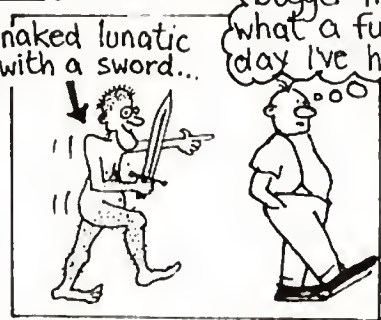 naked lunatic
with a sword...
what a
day I've